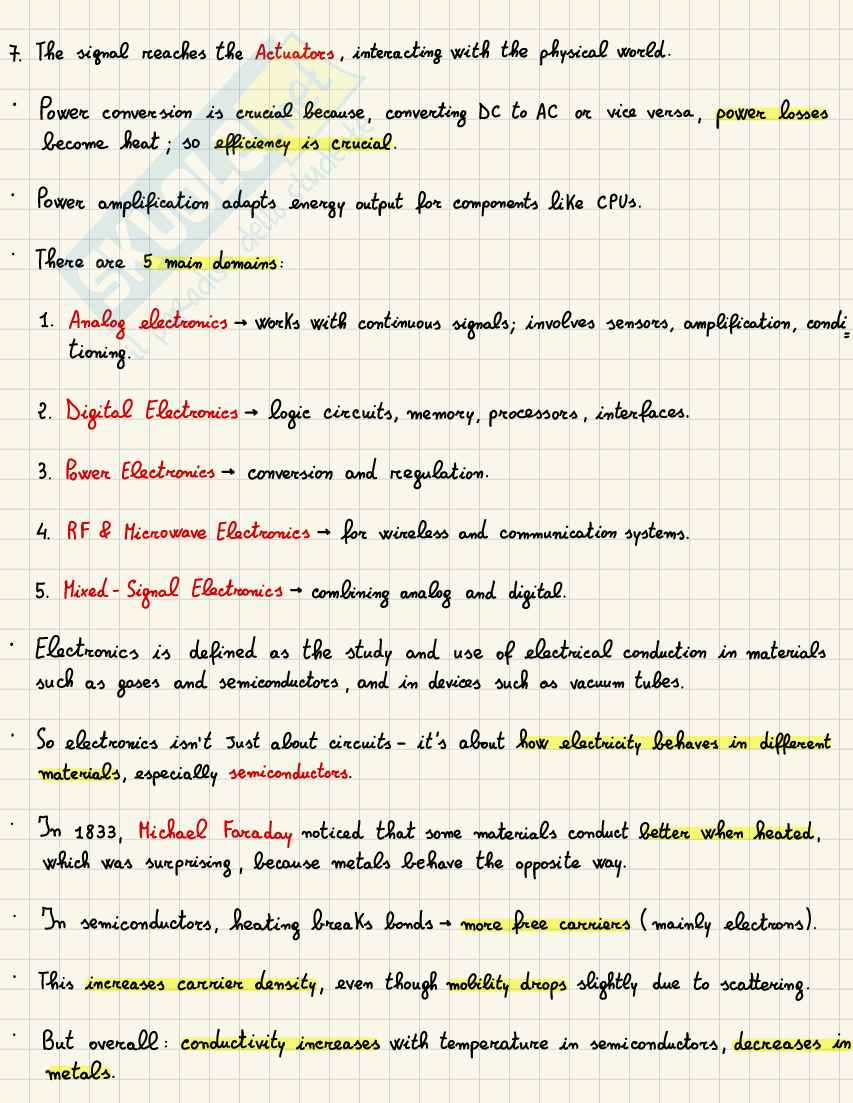 7. The signal reaches the Actuators, interacting with the physical world.
· Power conversion is crucial because, converting DC to AC or vice versa, power losses
become heat; so efficiency is crucial.
· Power amplification adapts energy output for components like CPUs.
· There are 5 main domains:
1. Analog electronics → works with continuous signals; involves sensors, amplification, condi=
tioning.
2. Digital Electronics → logic circuits, memory, processors, interfaces.
3. Power Electronics → conversion and regulation.
4. RF & Microwave Electronics → for wireless and communication systems.
5. Mixed-Signal Electronics → combining analog and digital.
· Electronics is defined as the study and use of electrical conduction in materials
such as gases and semiconductors, and in devices such as vacuum tubes.
· So electronics isn't just about circuits - it's about how electricity behaves in different
materials, especially semiconductors.
· In 1833, Michael Faraday noticed that some materials conduct better when heated,
which was surprising, because metals behave the opposite way.
· In semiconductors, heating breaks bonds → more free carriers (mainly electrons).
· This increases carrier density, even though mobility drops slightly due to scattering.
· But overall: conductivity increases with temperature in semiconductors, decreases in
metals.
SKUOLA.net